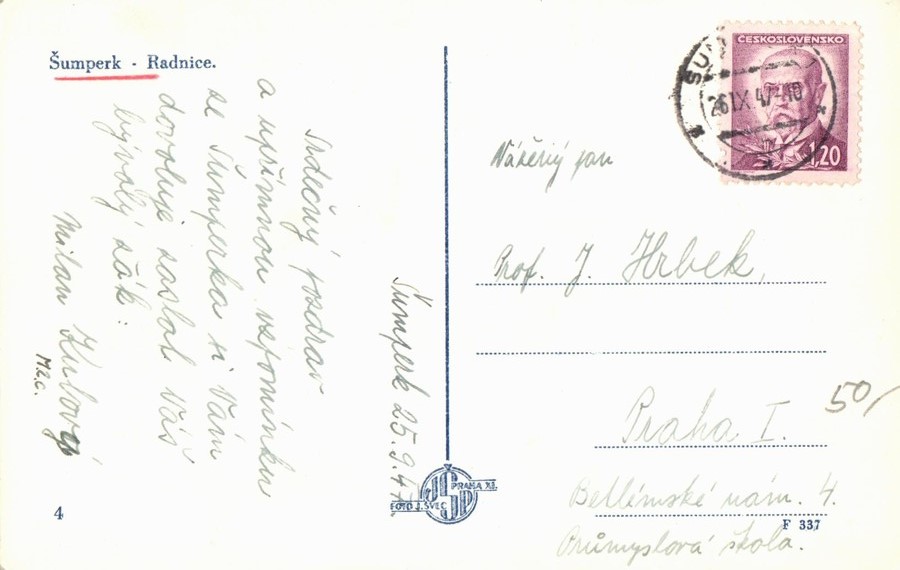 Šumperk - Radnice.
Srdečný pozdrav
a upřímnou vzpomínku
ze Šumperka si Vám
dovoluje zaslat Váš
bývalý žák:
Milan Kubový
M2c.
Šumperk 25.9.47
ČESKOSLOVENSKO
26.IX.47-10
1,20
Vážený pan
Prof. J. Hrbek,
Praha I.
50,-
Betlémské nám. 4.
Průmyslová škola.
FOTO J. ŠVEC
PRAHA XI.
4
F 337